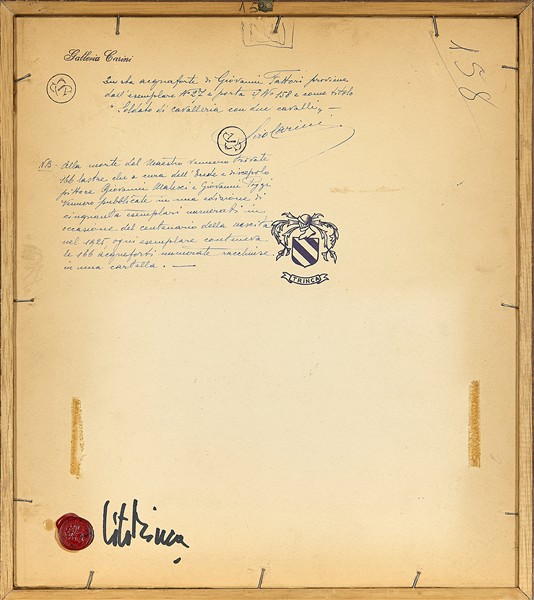 158
Galleria Carini
158
Questa acquaforte di Giovanni Fattori proviene
dall'esemplare N° 27 e porta il No 158 e come titolo
"Soldato di cavalleria con due cavalli, —
Siro Carini
NB - Alla morte del Maestro vennero trovate
166 lastre che a cura dell'Erede e discepolo
pittore Giovanni Malesci e Giovanni
vennero pubblicate in una edizione di
cinquanta esemplari numerati in
occasione del centenario della nascita
nel 1925. ogni esemplare conteneva
le 166 acqueforti numerate racchiuse
in una cartella. —
TRINCA